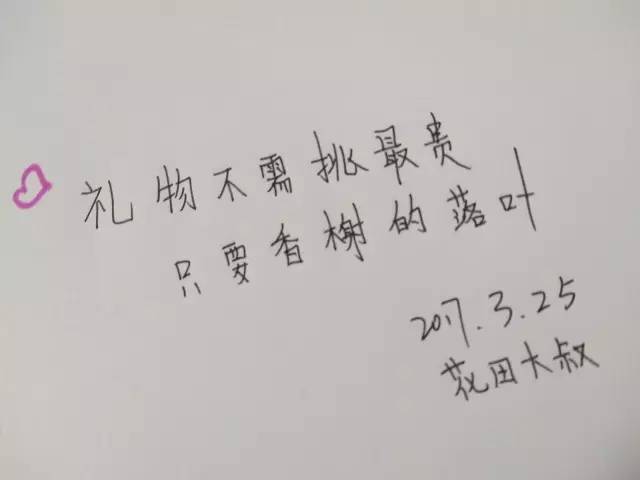 礼物不需挑最贵
只要香榭的落叶
2017.3.25
花田大叔